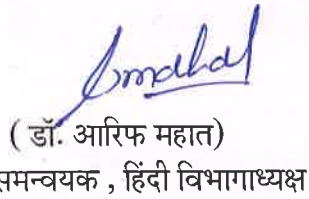 ( डॉ. आरिफ महात)
समन्वयक , हिंदी विभागाध्यक्ष